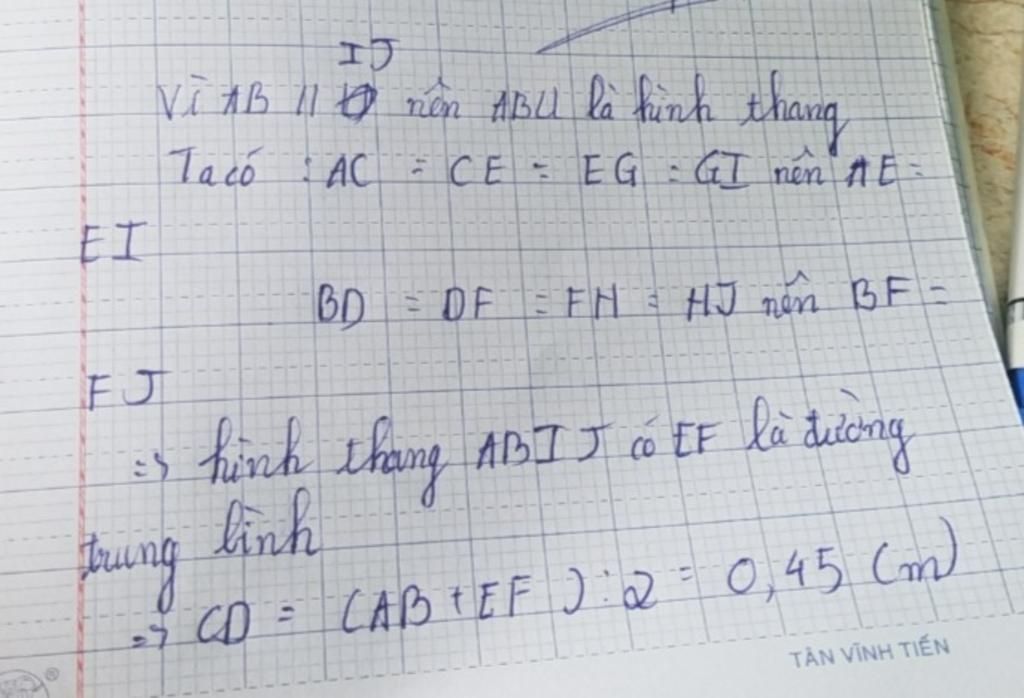 IJ
Vì AB // nên ABIJ là hình thang
Ta có : AC = CE = EG = GI nên AE =
EI
BD = DF = FH = HJ nên BF =
FJ
=> hình thang ABIJ có EF là đường
trung bình
=> CD = (AB + EF ) : 2 = 0,45 (m)
TÂN VĨNH TIẾN